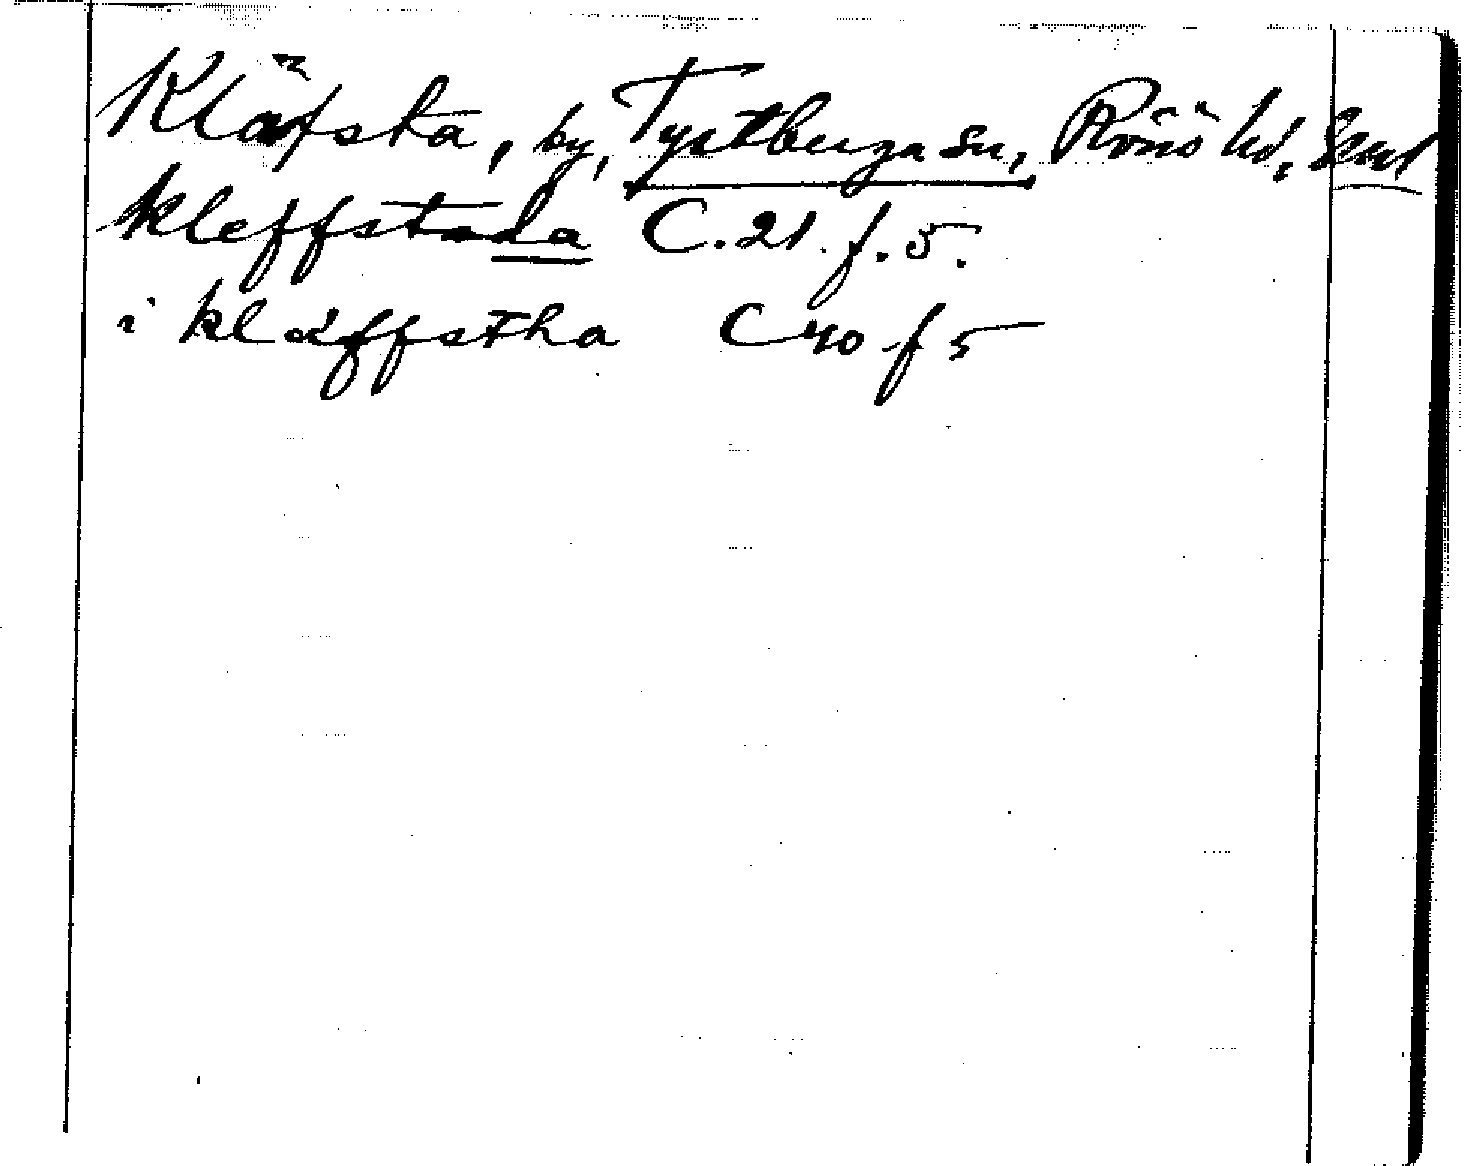 Kläfsta, by, Tystberga sn, Rönö hd, Srml
kleffstada C. 21. f. 5.
i kläffstha C 40 f 5